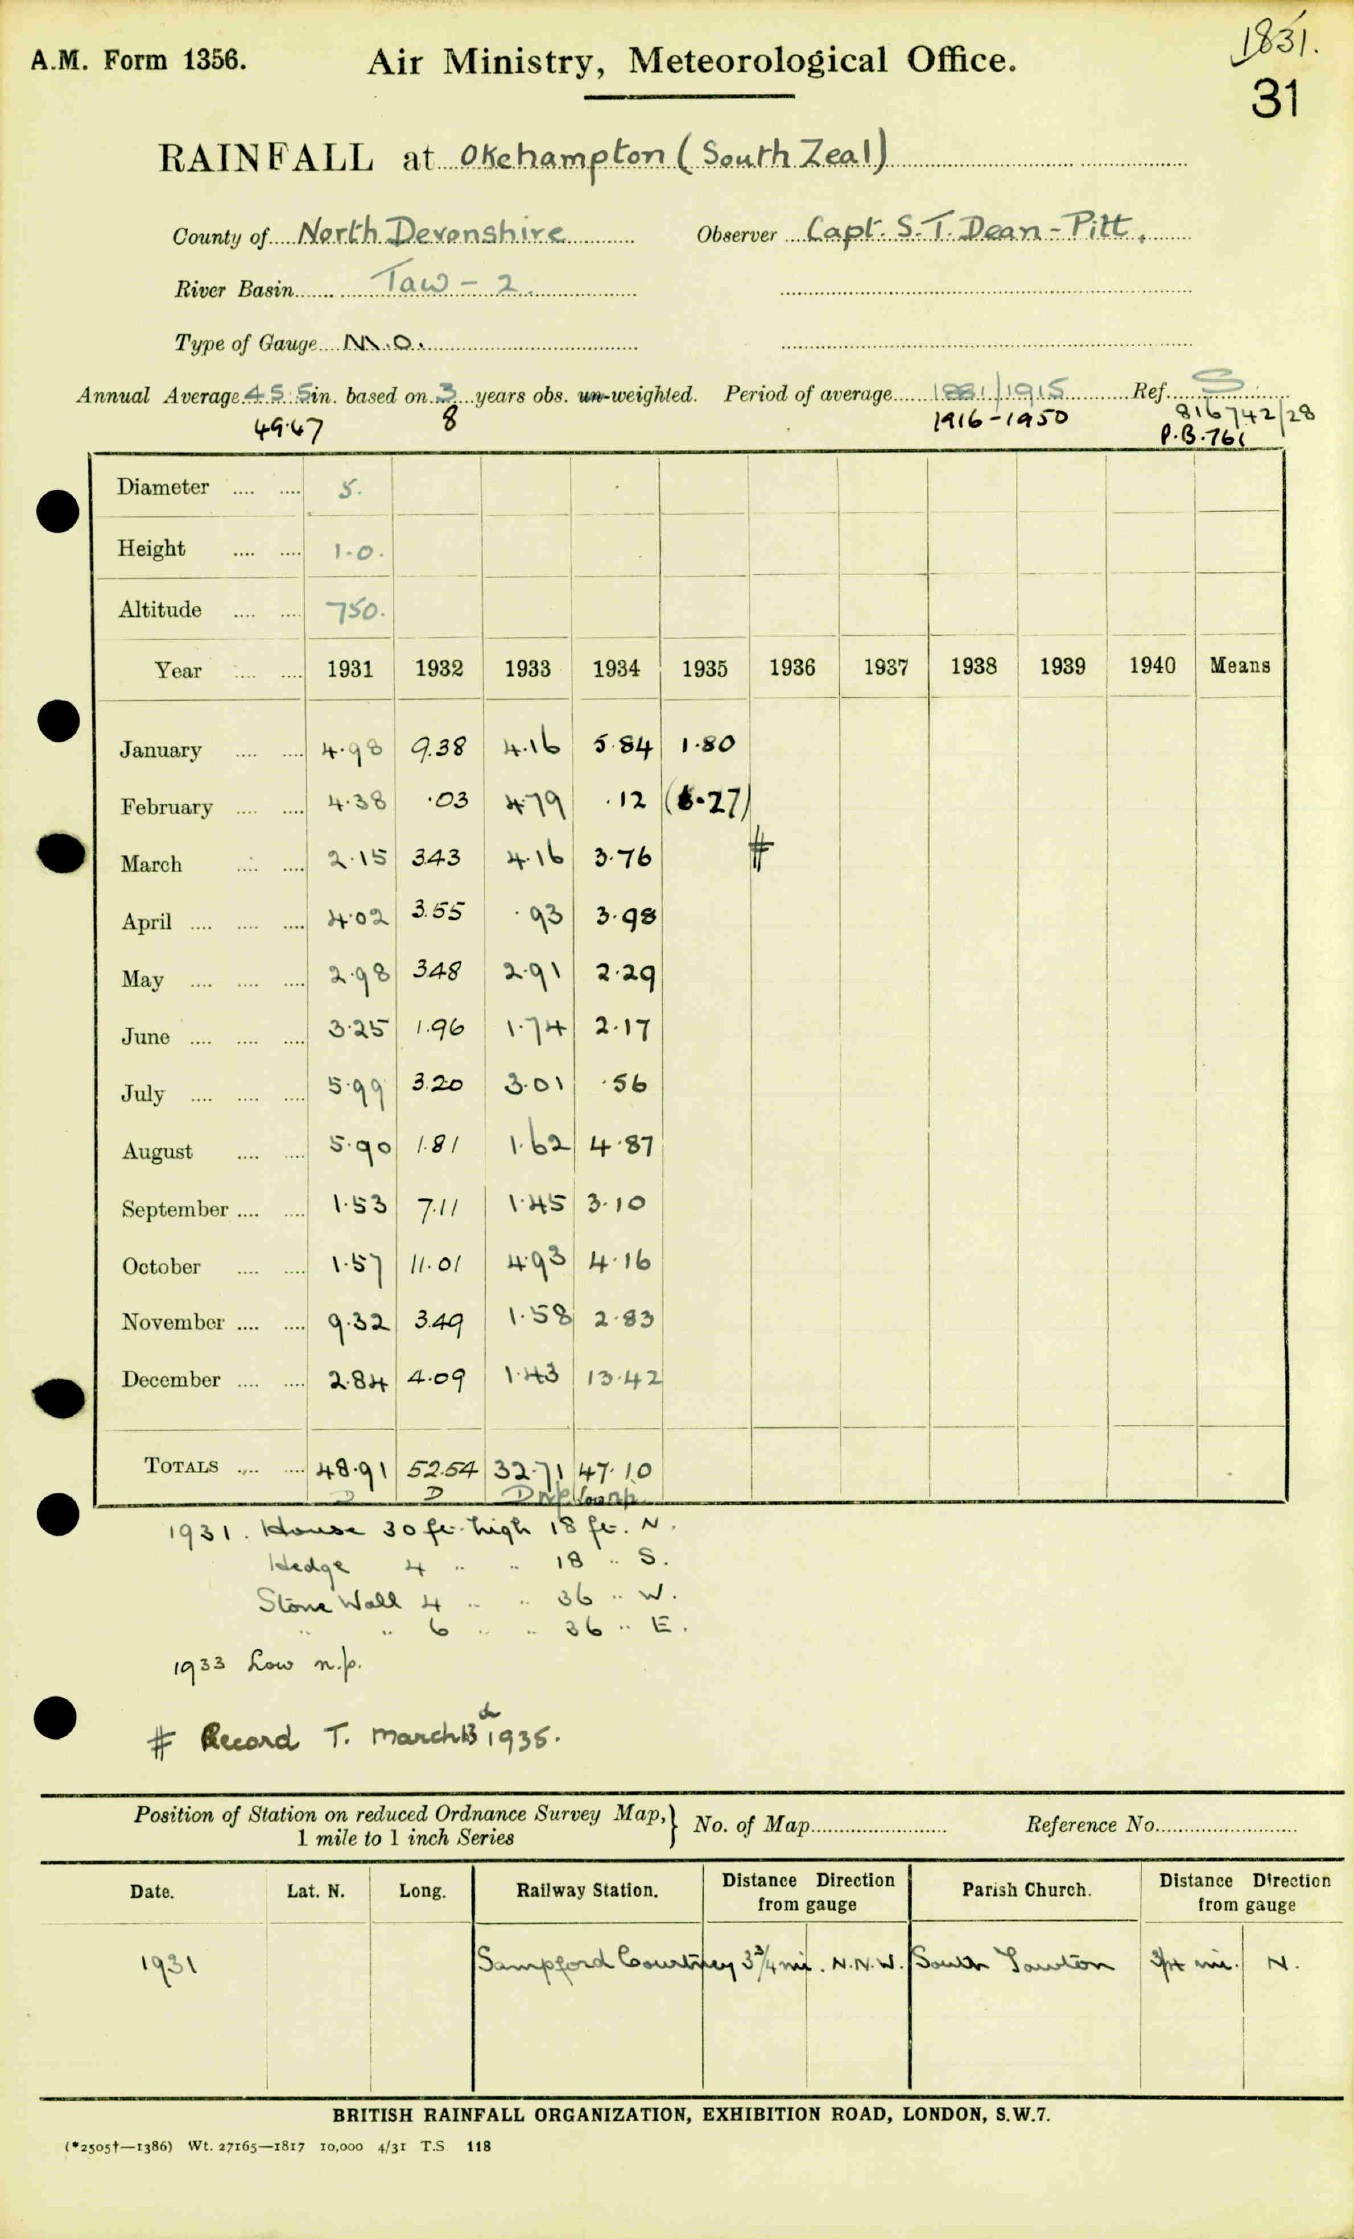 1831.
A.M. Form 1356. Air Ministry, Meteorological Office.
31
RAINFALL at Okehampton (South Zeal)
County of North Devonshire Observer Capt. S.T. Dean-Pitt.
River Basin Taw - 2
Type of Gauge M.O.
Annual Average 45.5 in. based on 3 years obs. un-weighted. Period of average 1881/1915 Ref. S
49.47 8 1916-1950 816742/28
P.B.761
Diameter 5.
Height 1.0.
Altitude 750.
Year 1931 1932 1933 1934 1935 1936 1937 1938 1939 1940 Means
January 4.98 9.38 4.16 5.84 1.80
February 4.38 .03 4.79 .12 (6.27)
March 2.15 3.43 4.16 3.76 #
April 4.02 3.55 .93 3.98
May 2.98 3.48 2.91 2.29
June 3.25 1.96 1.74 2.17
July 5.99 3.20 3.01 .56
August 5.90 1.81 1.62 4.87
September 1.53 7.11 1.45 3.10
October 1.57 11.01 4.93 4.16
November 9.32 3.49 1.58 2.83
December 2.84 4.09 1.43 13.42
TOTALS 48.91 52.54 32.71 47.10
D D D n.p. Low n.p.
1931. House 30 ft. high 18 ft. N.
Hedge 4 " " 18 " S.
Stone Wall 4 " " 36 " W.
" " 6 " " 36 " E.
1933 Low n.p.
# Record T. March 13th 1935.
Position of Station on reduced Ordnance Survey Map, } No. of Map Reference No.
1 mile to 1 inch Series
Date. Lat. N. Long. Railway Station. Distance Direction from gauge Parish Church. Distance Direction from gauge
1931 Sampford Courtney 3 3/4 mi. N.N.W. South Tawton 3/4 mi. N.
BRITISH RAINFALL ORGANIZATION, EXHIBITION ROAD, LONDON, S.W.7.
(*2505†—1386) Wt. 27165—1817 10,000 4/31 T.S 118